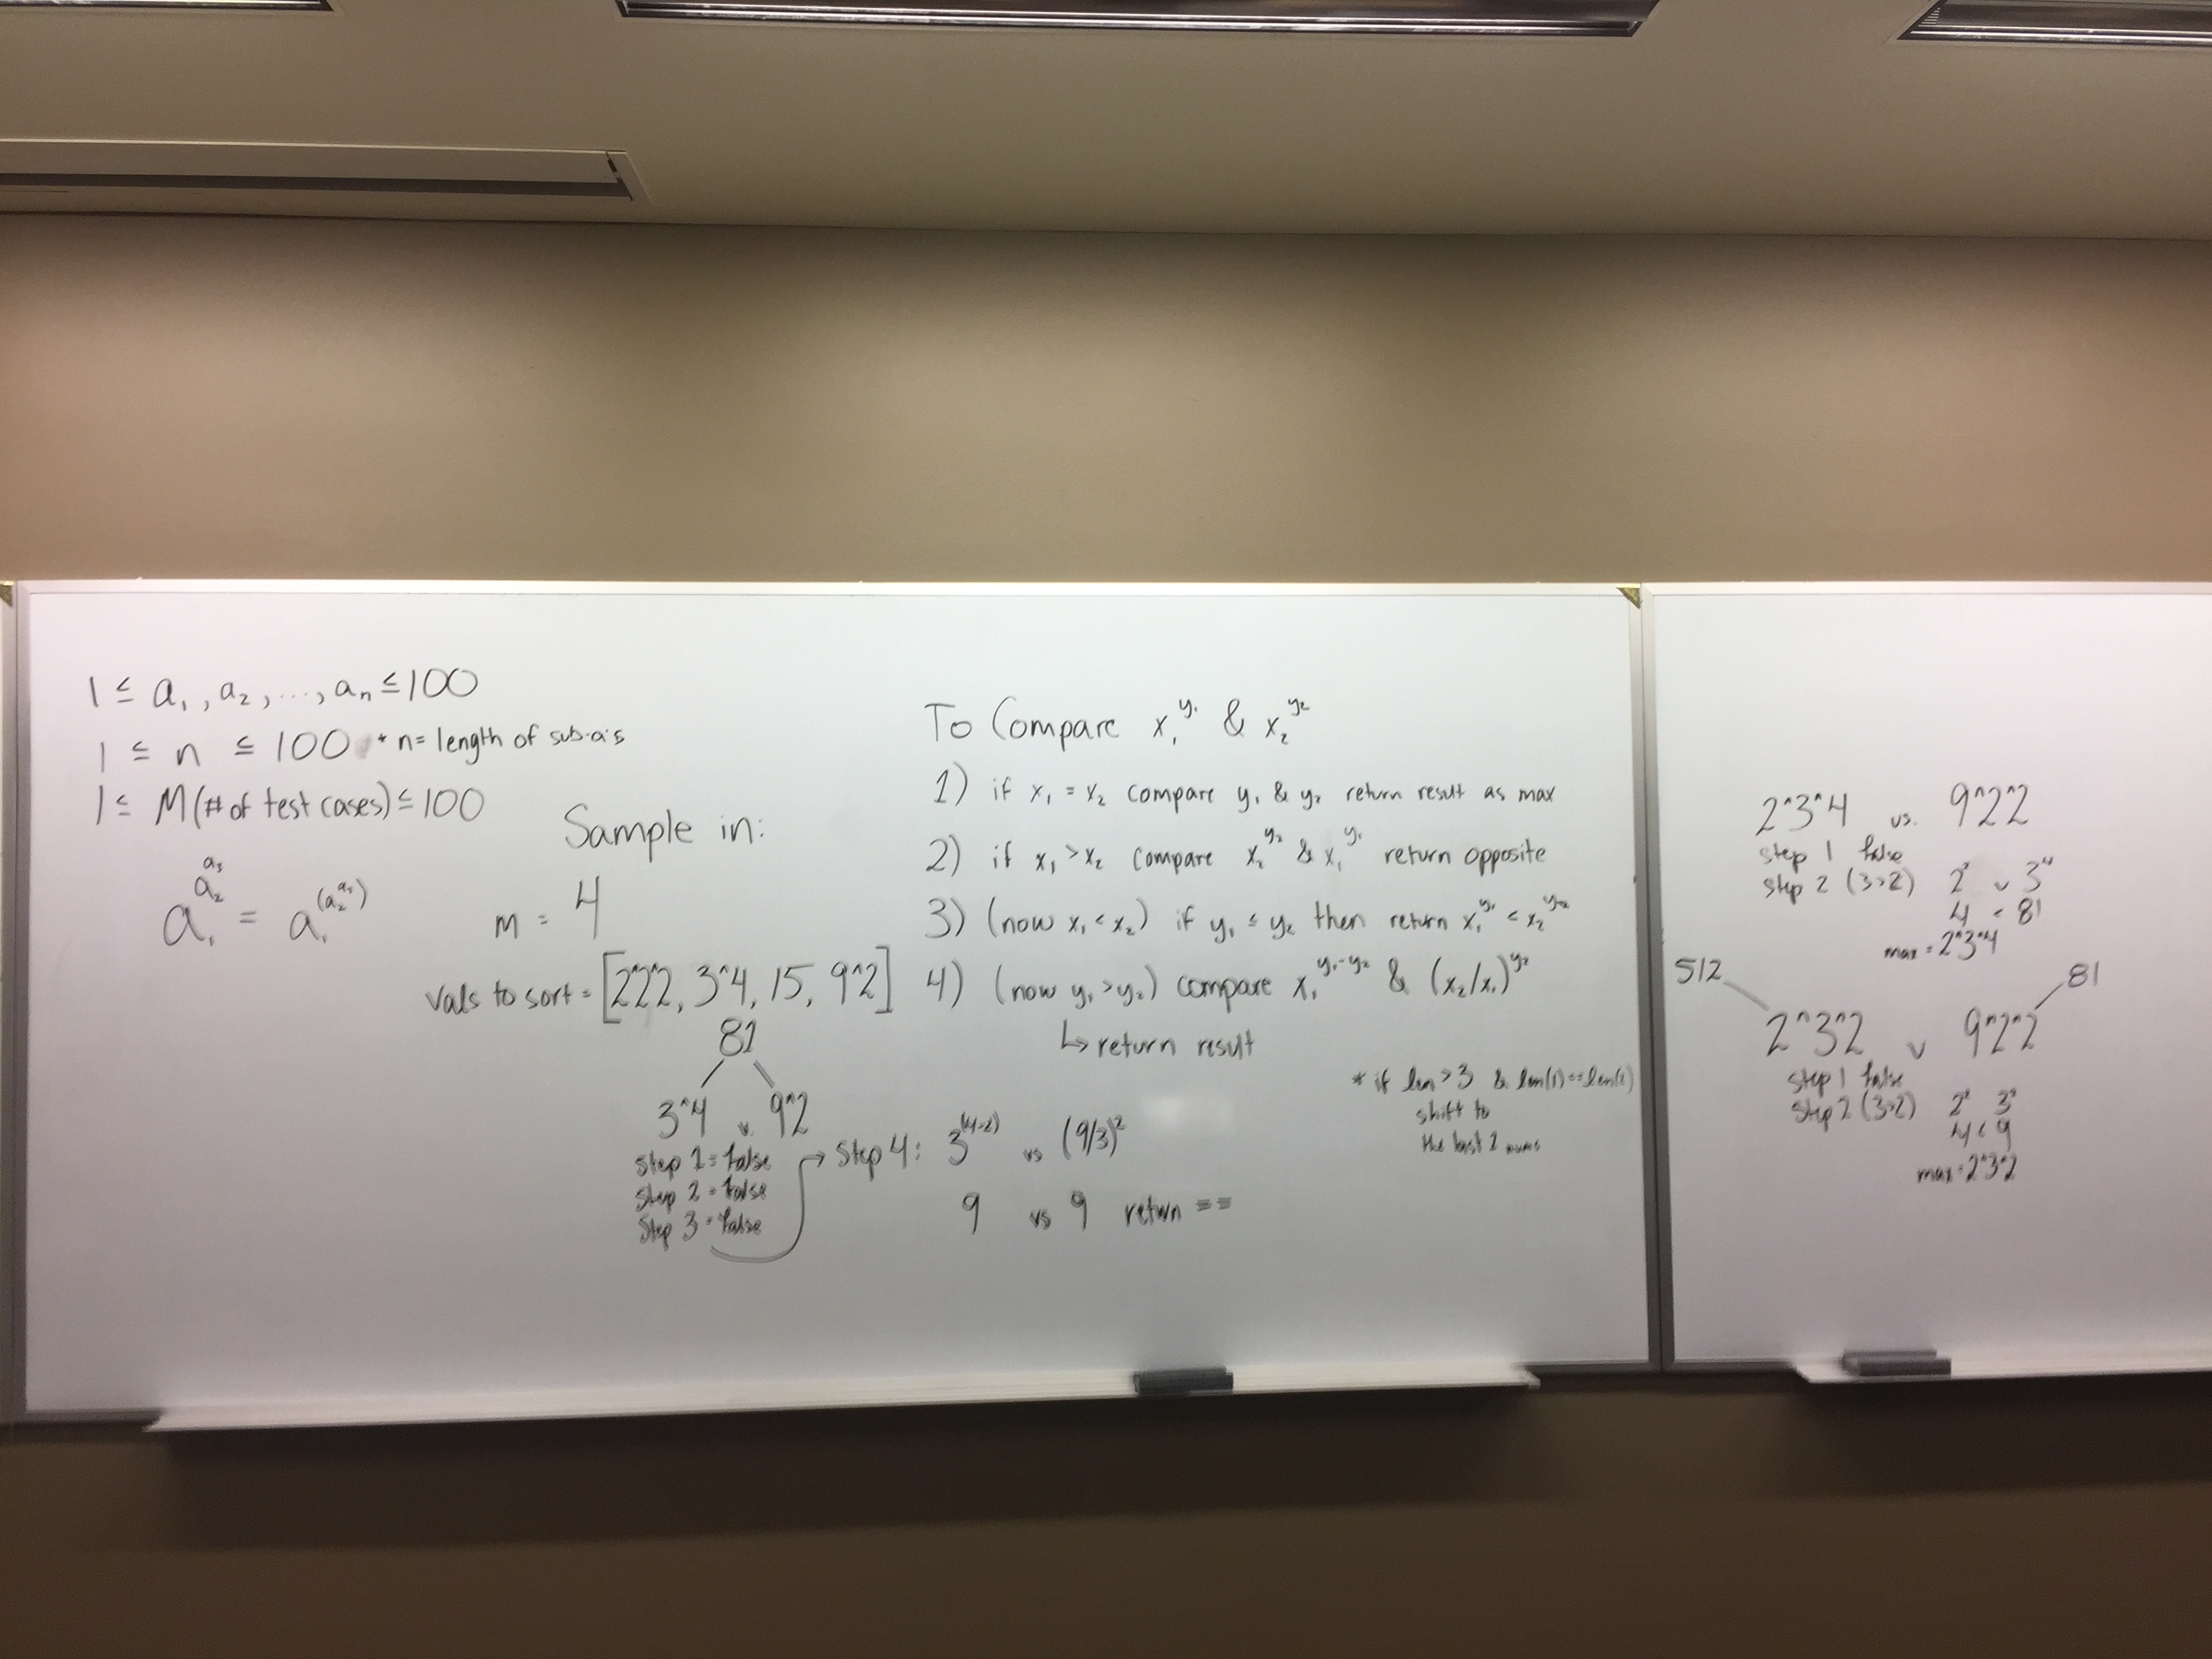 1 ≤ a₁, a₂, ..., aₙ ≤ 100
1 ≤ n ≤ 100 * n = length of sub-a's
1 ≤ M (# of test cases) ≤ 100
a₁^a₂^a₃ = a₁^(a₂^a₃)
Sample in:
m = 4
vals to sort = [2^2^2, 3^4, 15, 9^2]
81
3^4 v. 9^2
Step 1 = false
Step 2 = false
Step 3 = false
→ Step 4: 3^(4-2) vs (9/3)²
9 vs 9 return ==
To Compare x₁^y₁ & x₂^y₂
1) if x₁ = x₂ compare y₁ & y₂ return result as max
2) if x₁ > x₂ compare x₂^y₂ & x₁^y₁ return opposite
3) (now x₁ < x₂) if y₁ ≤ y₂ then return x₁^y₁ < x₂^y₂
4) (now y₁ > y₂) compare x₁^(y₁-y₂) & (x₂/x₁)^y₂
↳ return result
* if len > 3 & len(1) == len(2)
shift to
the last 2 nums
2^3^4 vs. 9^2^2
Step 1 false
Step 2 (3>2) 2² v 3⁴
4 < 81
max = 2^3^4
512 81
2^3^2 v 9^2^2
Step 1 false
Step 2 (3>2) 2² 3²
4 < 9
max = 2^3^2